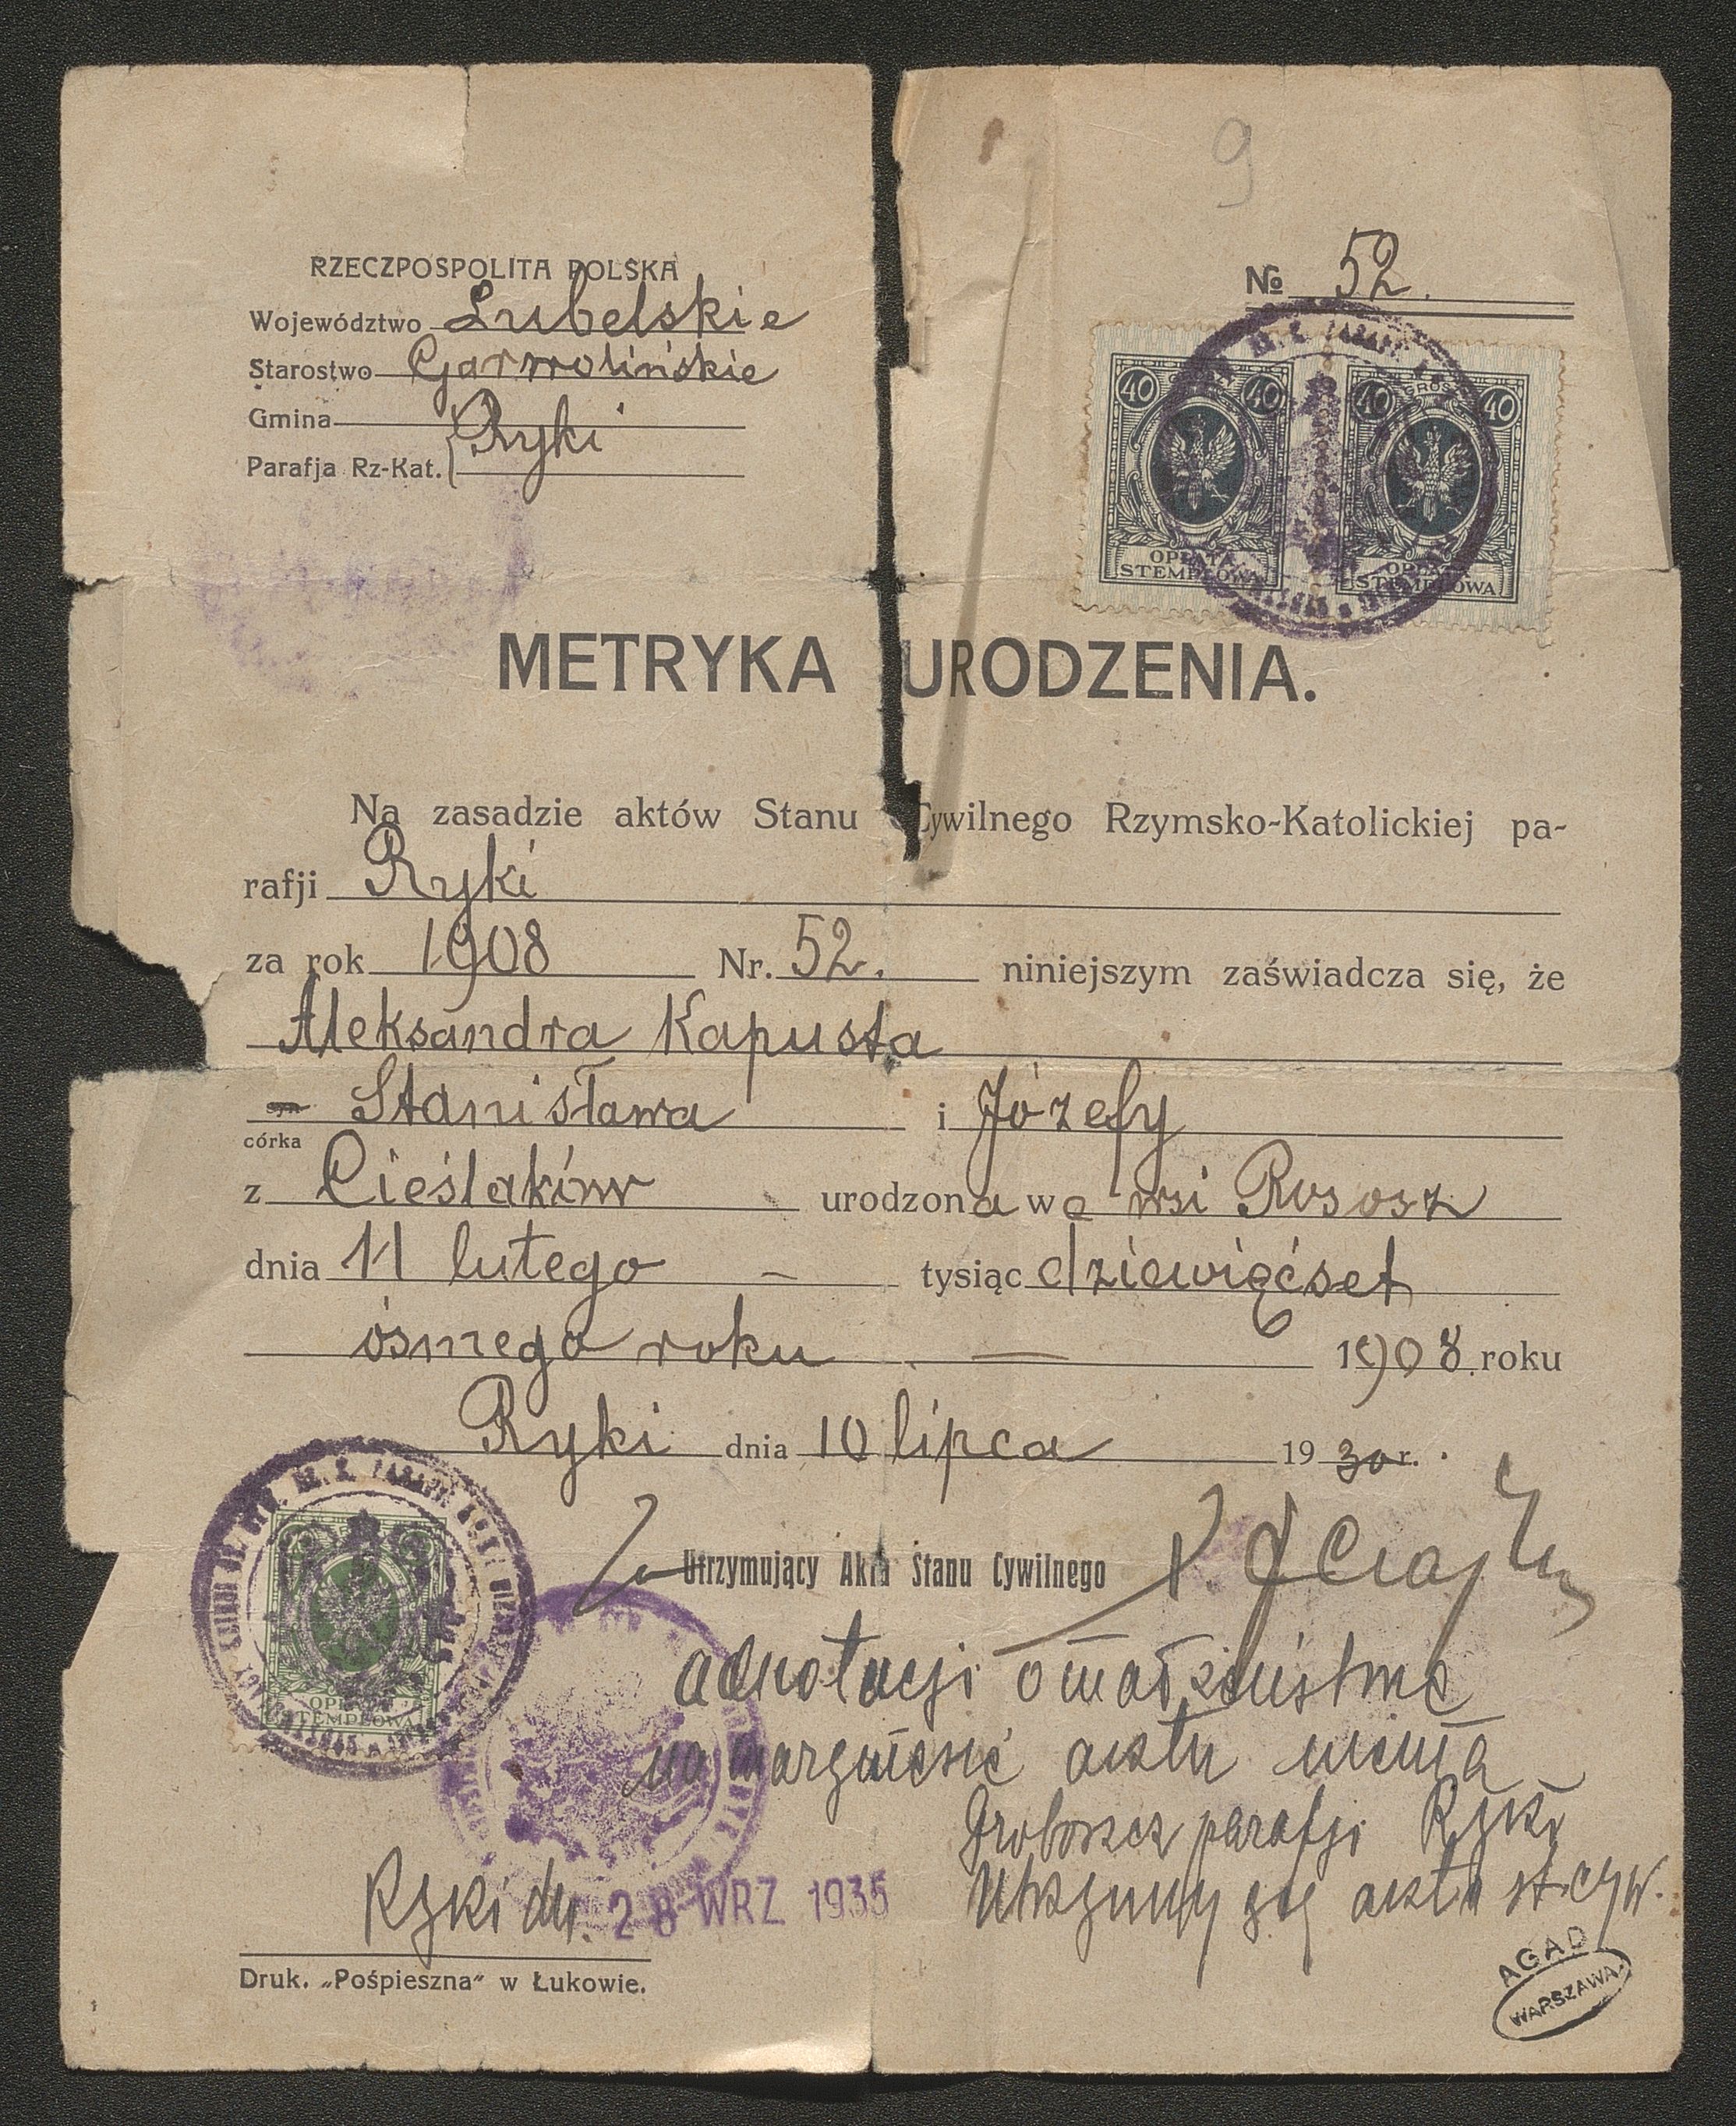 9
RZECZPOSPOLITA POLSKA
Województwo Lubelskie
Starostwo Garwolińskie
Gmina
Parafja Rz-Kat. Ryki
№ 52.
40 40 40 GROSZ 40
OPŁATA STEMPLOWA OPŁATA STEMPLOWA
METRYKA URODZENIA.
Na zasadzie aktów Stanu Cywilnego Rzymsko-Katolickiej pa-
rafji Ryki
za rok 1908 Nr. 52. niniejszym zaświadcza się, że
Aleksandra Kapusta
syn Stanisława i Józefy
córka
z Cieślaków urodzona we wsi Rososz
dnia 11 lutego — tysiąc dziewięćset
ósmego roku — 1908 roku
Ryki dnia 10 lipca 1930 r.
Za Utrzymujący Akta Stanu Cywilnego
OPŁATA STEMPLOWA
adnotacji o małżeństwie
na marginesie aktu niema
Proboszcz parafji Ryki
Utrzymujący akta st. cyw.
Ryki dn. 28 WRZ 1935
Druk. „Pośpieszna" w Łukowie.
AGAD
WARSZAWA